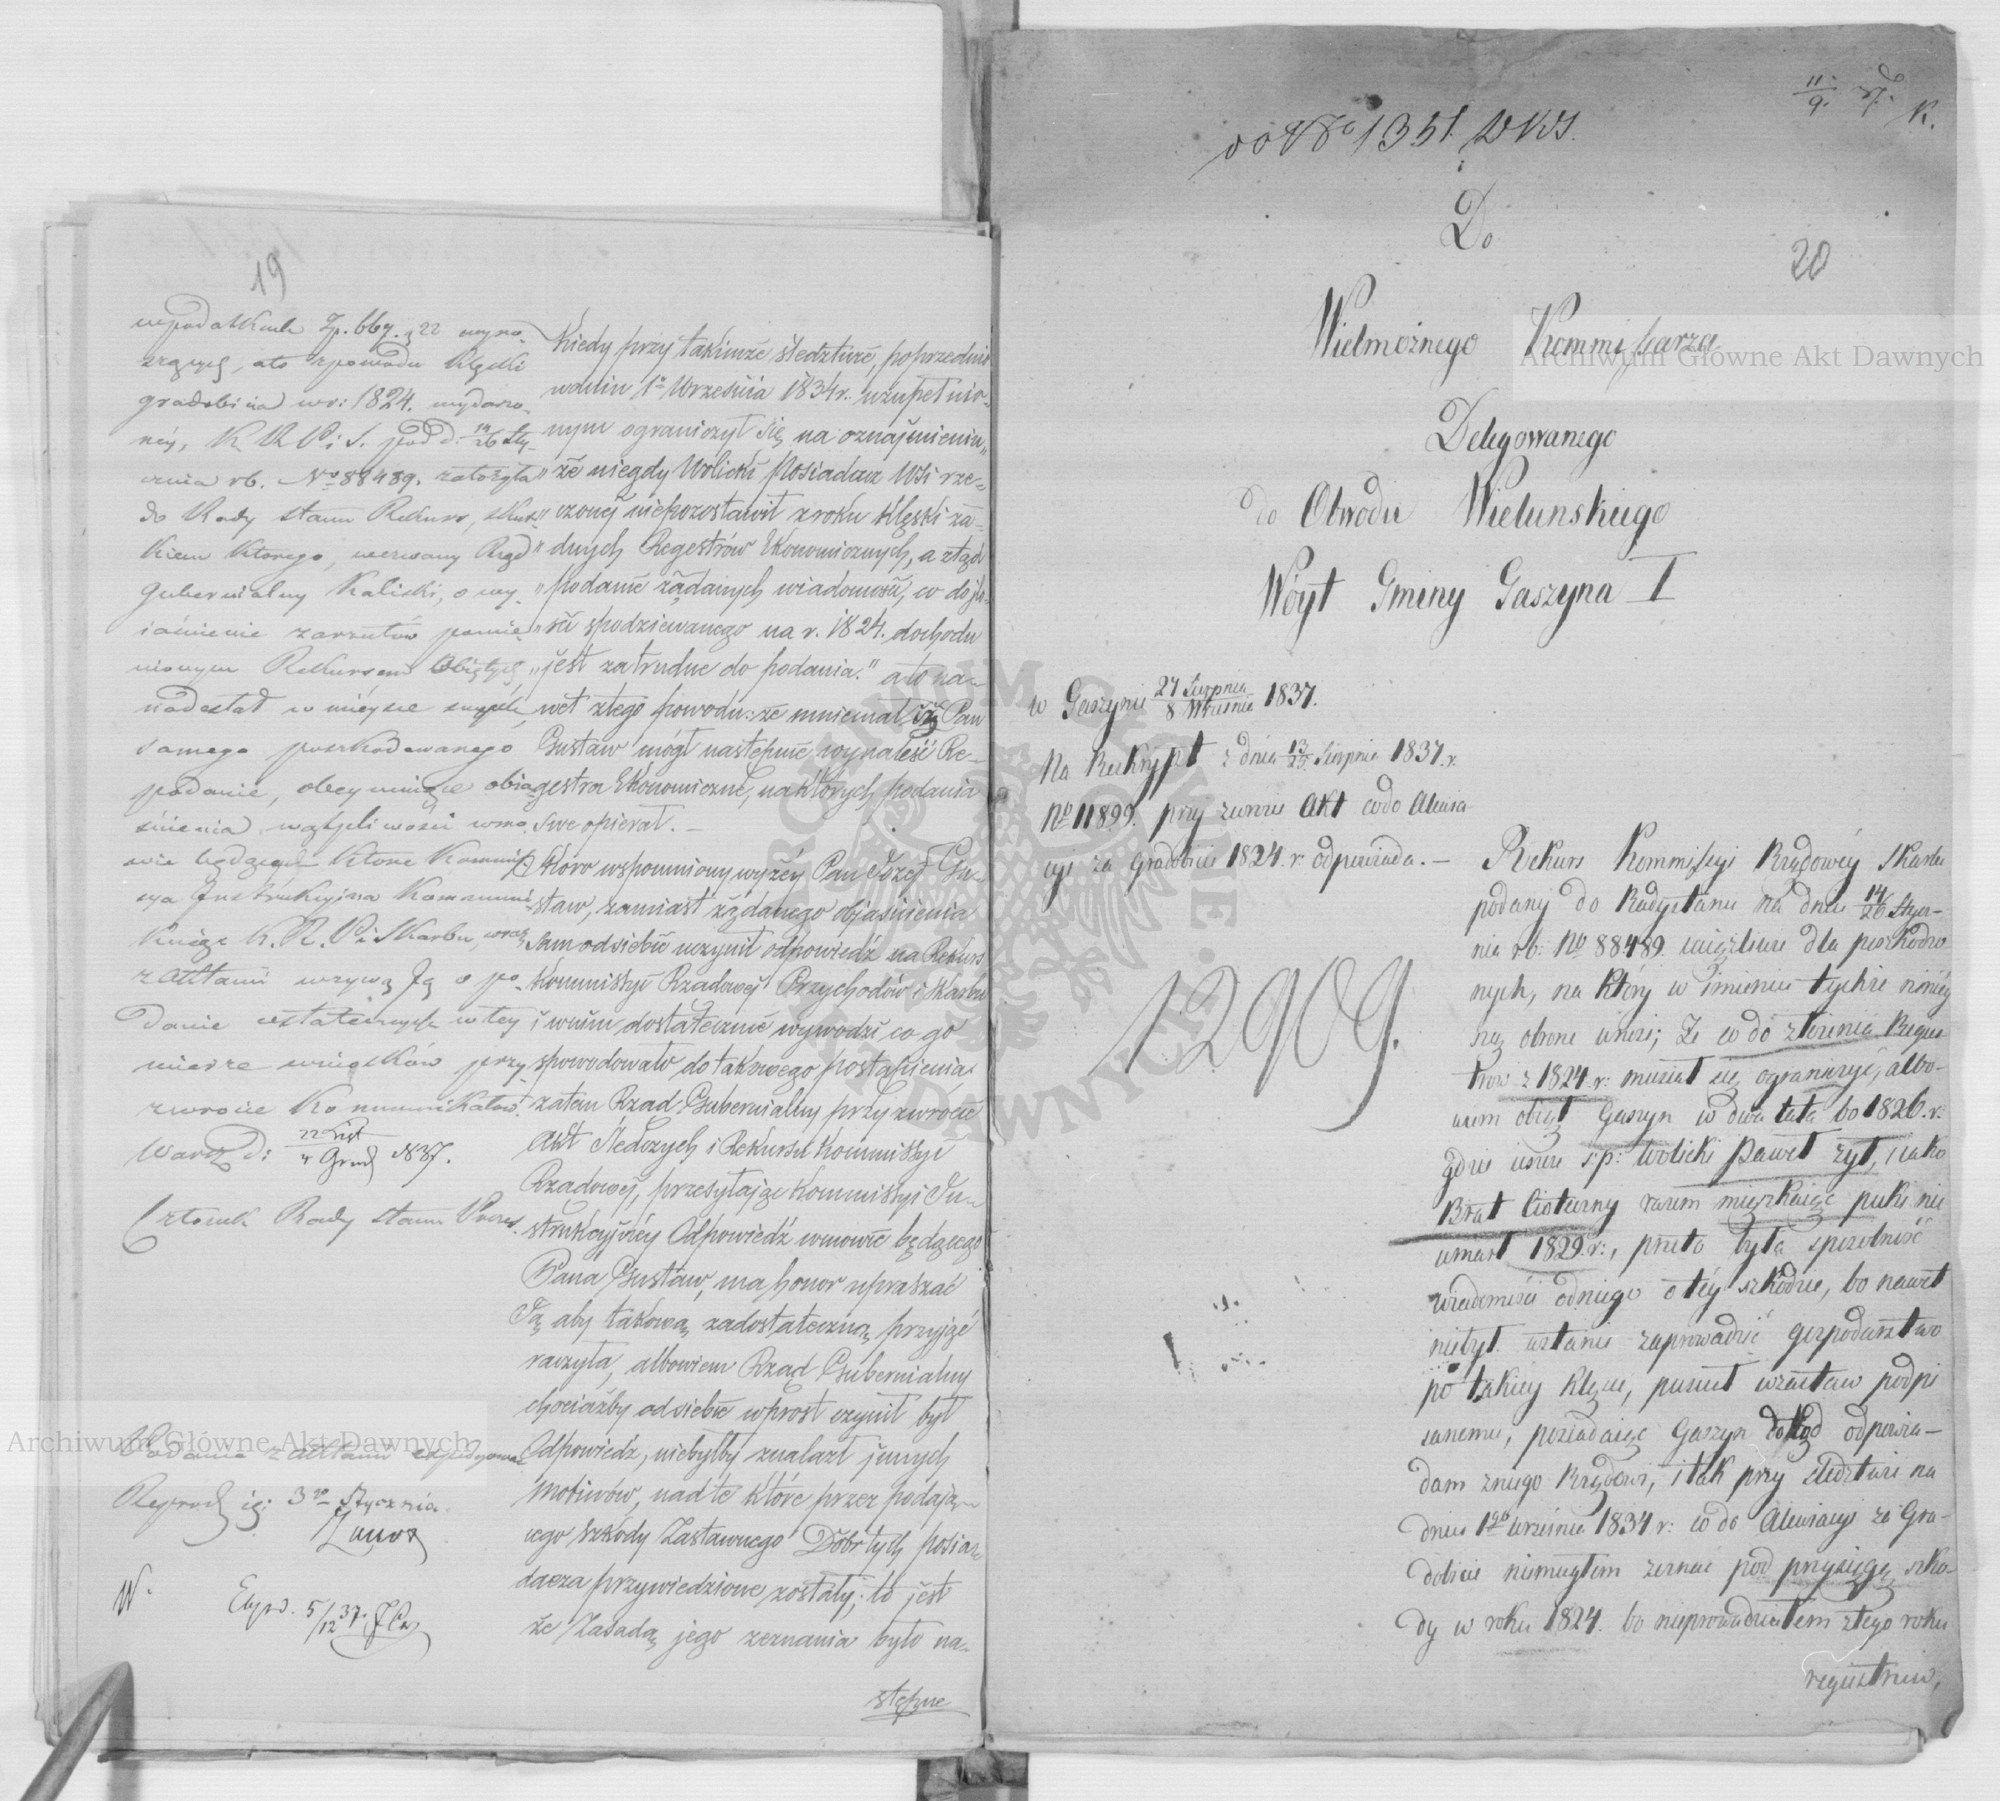 19
w podatkach Zp. 667. g 22 wyno-
szących, a to z powodu klęski
gradobicia w r: 1824. wydarzo-
néy, K. R. P. i S. pod d: 14/26 Sty-
cznia r b. No 88489. założyła
do Rady Stanu Rekurs, skut-
kiem którego, wezwany Rząd
Gubernialny Kaliski, o wy-
iaśnienie zarzutów pomie-
nionym Rekursem Obiętych,
nadesłał w mieysce swoje
samego poszkodowanego
podanie, obeymuiące obia-
śnienia wątpliwości w mo-
wie będących które Kommis-
sya Instrukcyina Kommuni-
kuiąc K. R. P. i Skarbu, wraz
z aktami wzywa Ją o po-
danie ostatecznych w tey
mierze wniosków przy
zwrocie Kommunikatów.
Warsz d: 22 List/4 Grud 1837.
Członek Rady Stanu Prezes.
Podanie z aktami expedyować
Reprod. ić: 3go Stycznia.
W.
Exped. 5/12 37.
Kiedy przy takimże śledztwie, poprzednio
w dniu 1o Września 1834 r. uzupełnio-
nym ograniczył się na oznajmieniu
"że niegdy Wolicki Posiadacz Wsi rze-
"czonej niepozostawił z roku klęski ża-
"dnych Regestrów Ekonomicznych, a ztąd
"podanie żądanych wiadomości, co do ilo-
"ści spodziewanego na r. 1824. dochodu
"jest zatrudne do podania." a to na-
wet z tego powodu: że mniemał iż Pan
Gustaw mógł następnie wynaleść Re-
gestra Ekonomiczne, na których podania
swe opierał. —
Skoro wspomniony wyżéy Pan Józef Gu-
staw, zamiast żądanego objaśnienia
sam od siebie uczynił odpowiedź na Rekurs
Kommissyi Rządowej Przychodów i Skarbu
i w niém dostatecznie wywodzi co go
spowodowało do takowego postąpienia
zatem Rząd Gubernialny przy zwrocie
Akt Śledczych i Rekursu Kommissyi
Rządowej, przesyłając Kommissyi In-
strukcyjnéy Odpowiedź w mowie będącego
Pana Gustaw, ma honor upraszać
Ją, aby takową za dostateczną przyjąć
raczyła, albowiem Rząd Gubernialny
chociażby od siebie wprost czynił był
Odpowiedź, niebyłby znalazł jnnych
motiwów, nad te które przez podają-
cego szkody Zastawnego Dóbr tych posia-
dacza przywiedzione zostały; to jest
że Zasadą jego zeznania było na-
stępne
11/9. K.
do No 1351 DKS.
20
Do
Wielmożnego Kommissarza
Delegowanego
do Obwodu Wielunskiego
Wóyt Gminy Gaszyna I
w Gaszynie 27 Sierpnia/8 Wrześnie 1837.
Na Reskrypt z dnia 13/25 Sierpnia 1837. r.
No 11899. przy zwrocie Akt co do Alewia-
cyi za Gradobicie 1824. r. odpowiada. —
12909.
Rekurs Kommissyi Rządowéy Skarbu
podany do Rady Stanu na dniu 14/26 Stycz-
nia r. b: No 88489. uciążliwe dla poszkodo-
nych, na który w imieniu tychże niniéy-
szą obronę wnosi; Że co do złożenia Reges-
trów z 1824 r: musiał się ograniczyć, albo-
wiem objął Gaszyn w dwa lata bo 1826. r:
gdzie ieszcze ś: p: Wolicki Paweł żył, i iako
Brat Cioteczny razem mieszkaiąc puki nie
umarł 1829. r:, przeto była sposobność
wiadomości od niego o téy szkodzie, bo nawet
niebył w stanie zaprowadzić gospodarstwo
po takiéy klęsce, puscił w zastaw podpi
sanemu, posiadaiąc Gaszyn dotąd odpowia-
dam z niego Rządowi, i tak przy śledztwie na
dniu 1go września 1834 r: co do Alewiacyi za Gra-
dobicie niemogłem zeznać pod przysięgą szko-
dy w roku 1824. bo nieprowadziłem z tego roku
regiestrów,
Archiwum Główne Akt Dawnych
Archiwum Główne Akt Dawnych
ARCHIWUM GŁÓWNE AKT DAWNYCH